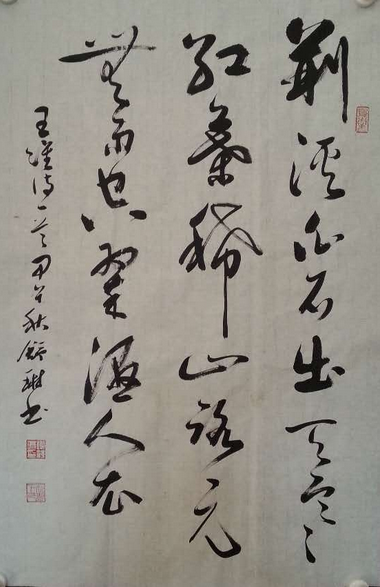 荆溪白石出天寒
红葉稀山路元
無雨空翠湿人衣
王维诗一首甲午秋书